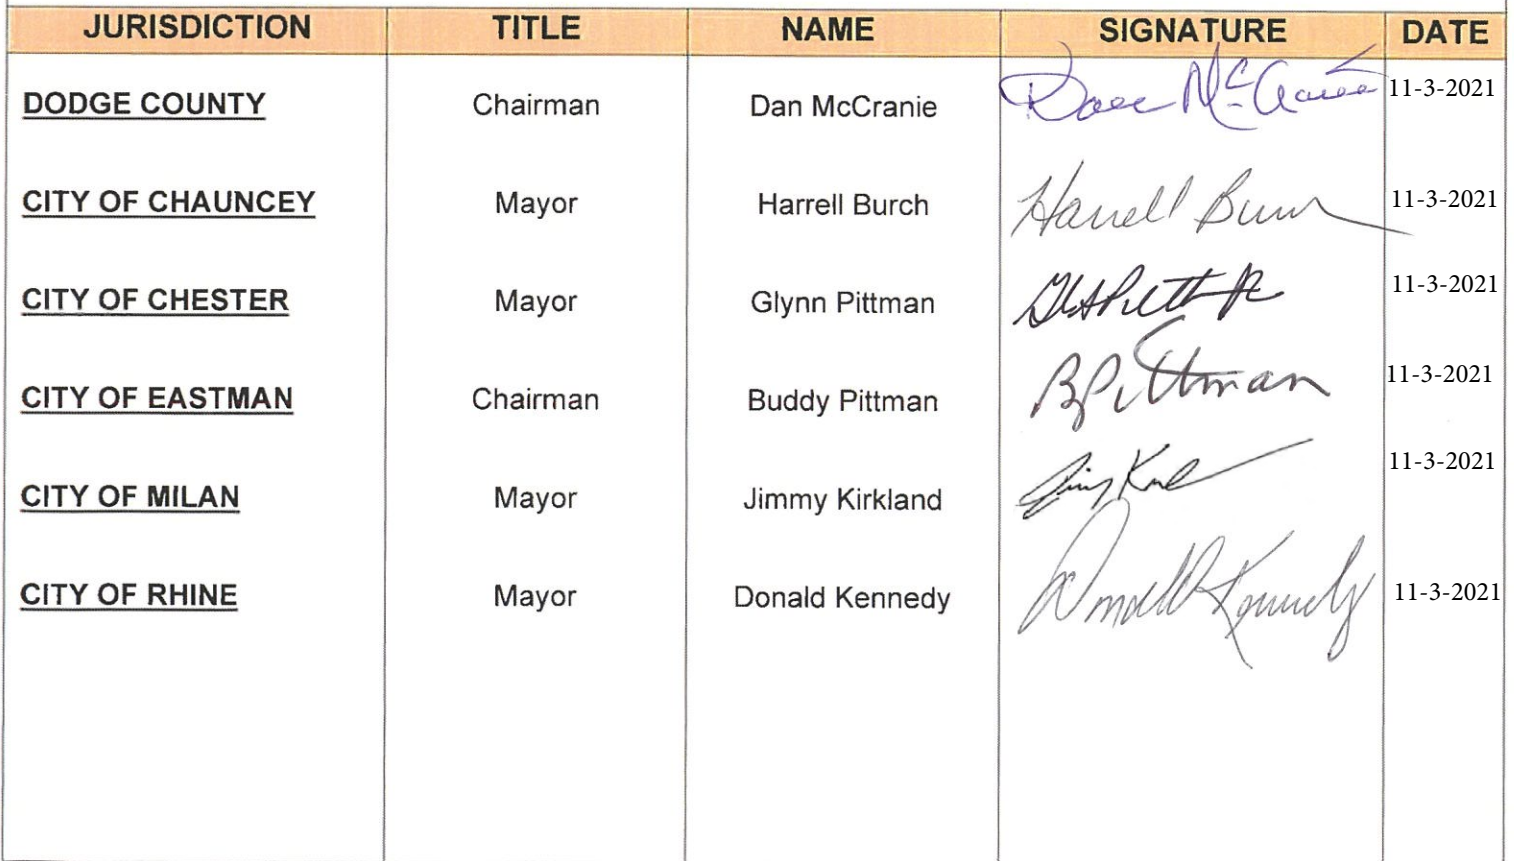 JURISDICTION TITLE NAME SIGNATURE DATE
DODGE COUNTY Chairman Dan McCranie Dan McCranie 11-3-2021
CITY OF CHAUNCEY Mayor Harrell Burch Harrell Burch 11-3-2021
CITY OF CHESTER Mayor Glynn Pittman 11-3-2021
CITY OF EASTMAN Chairman Buddy Pittman B Pittman 11-3-2021
CITY OF MILAN Mayor Jimmy Kirkland 11-3-2021
CITY OF RHINE Mayor Donald Kennedy Donald Kennedy 11-3-2021